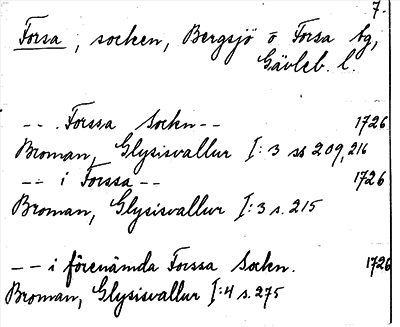 7.
Forsa, socken, Bergsjö o Forsa tg,
Gävleb. l.
-- . Forssa Sockn --
1726
Broman, Glysisvallur I:3 ss 209, 216
-- i Forssa --
1726
Broman, Glysisvallur I:3 s. 215
-- i förenämda Forssa Sockn.
1726
Broman, Glysisvallur I:4 s. 275